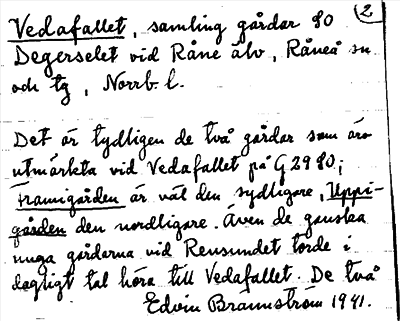 2
Vedafallet, samling gårdar SO
Degerselet vid Råne älv, Råneå sn
och tg, Norrb. l.
Det är tydligen de två gårdar som äro
utmärkta vid Vedafallet på G 29 SO;
Framigården är väl den sydligare, Uppi-
gården den nordligare. Även de ganska
unga gårdarna vid Rensundet torde i
dagligt tal höra till Vedafallet. De två
Edvin Brännström 1941.